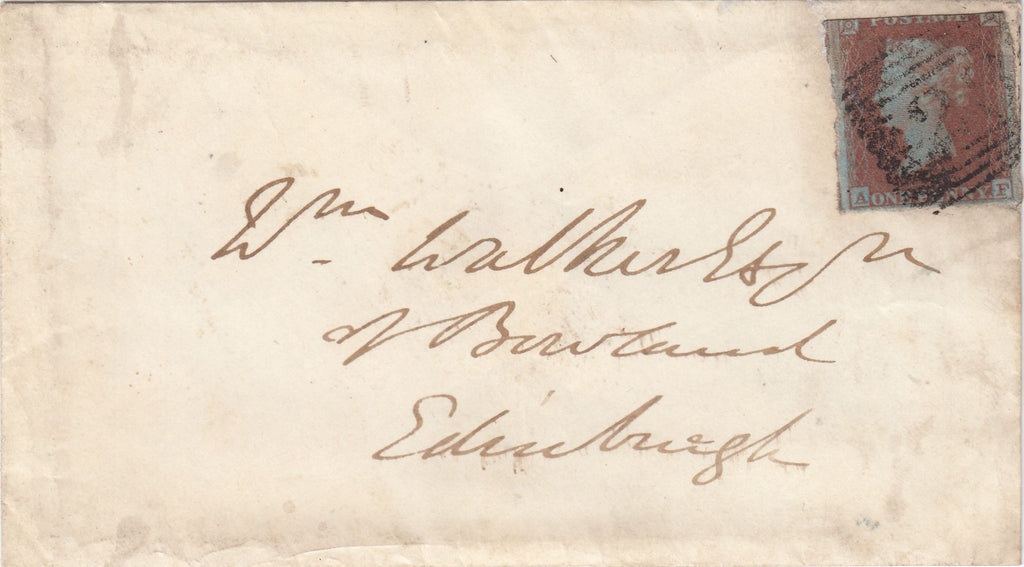 POSTAGE
A ONE PENNY F
Wm Walker Esqr
of Bowland
Edinburgh